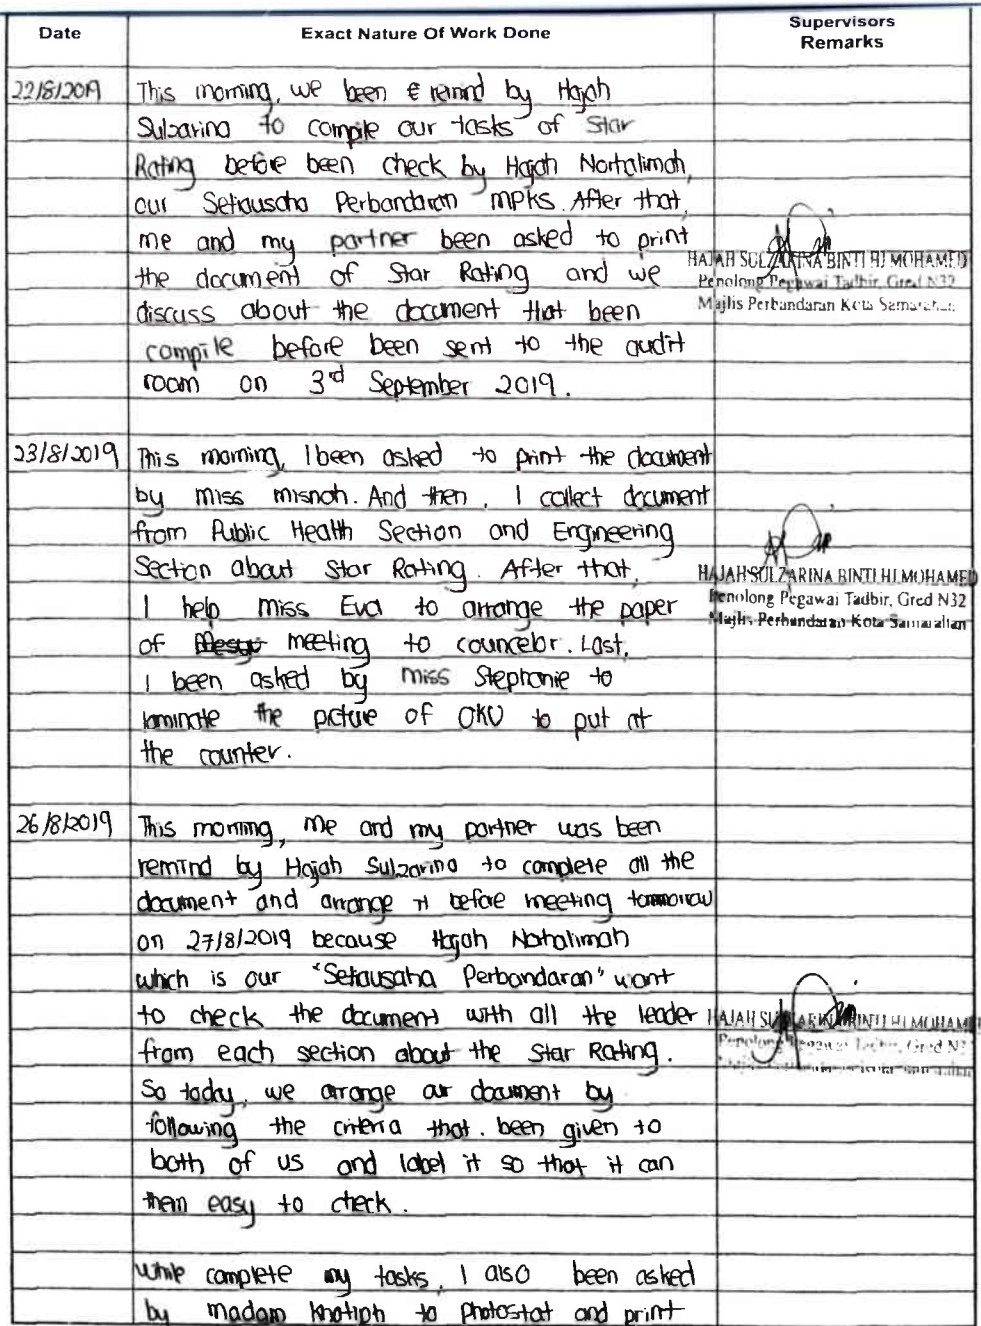 Date
Exact Nature Of Work Done
Supervisors
Remarks
22/8/2019
This morning, we been remind by Hajah
Sulzarina to compile our tasks of Star
Rating before been check by Hajah Norhalimah,
our Setiausaha Perbandaran MPKS. After that,
me and my partner been asked to print
the document of Star Rating and we
discuss about the document that been
compile before been sent to the audit
room on 3rd September 2019.
HAJAH SULZARINA BINTI HJ MOHAMED
Penolong Pegawai Tadbir, Gred N32
Majlis Perbandaran Kota Samarahan
23/8/2019
This morning, I been asked to print the document
by miss misnah. And then, I collect document
from Public Health Section and Engineering
Section about Star Rating. After that,
I help miss Eva to arrange the paper
of meeting to councelor. Last,
I been asked by miss Stephanie to
laminate the picture of OKU to put at
the counter.
HAJAH SULZARINA BINTI HJ MOHAMED
Penolong Pegawai Tadbir, Gred N32
Majlis Perbandaran Kota Samarahan
26/8/2019
This morning, me and my partner was been
remind by Hajah Sulzarina to complete all the
document and arrange it before meeting tommorrow
on 27/8/2019 because Hajah Norhalimah
which is our "Setiausaha Perbandaran" want
to check the document with all the leader
from each section about the Star Rating.
So today, we arrange our document by
following the criteria that. been given to
both of us and label it so that it can
them easy to check.
HAJAH SULZARINA BINTI HJ MOHAMED
Penolong Pegawai Tadbir, Gred N32
While complete my tasks, I also been asked
by madam Khatiph to photostat and print